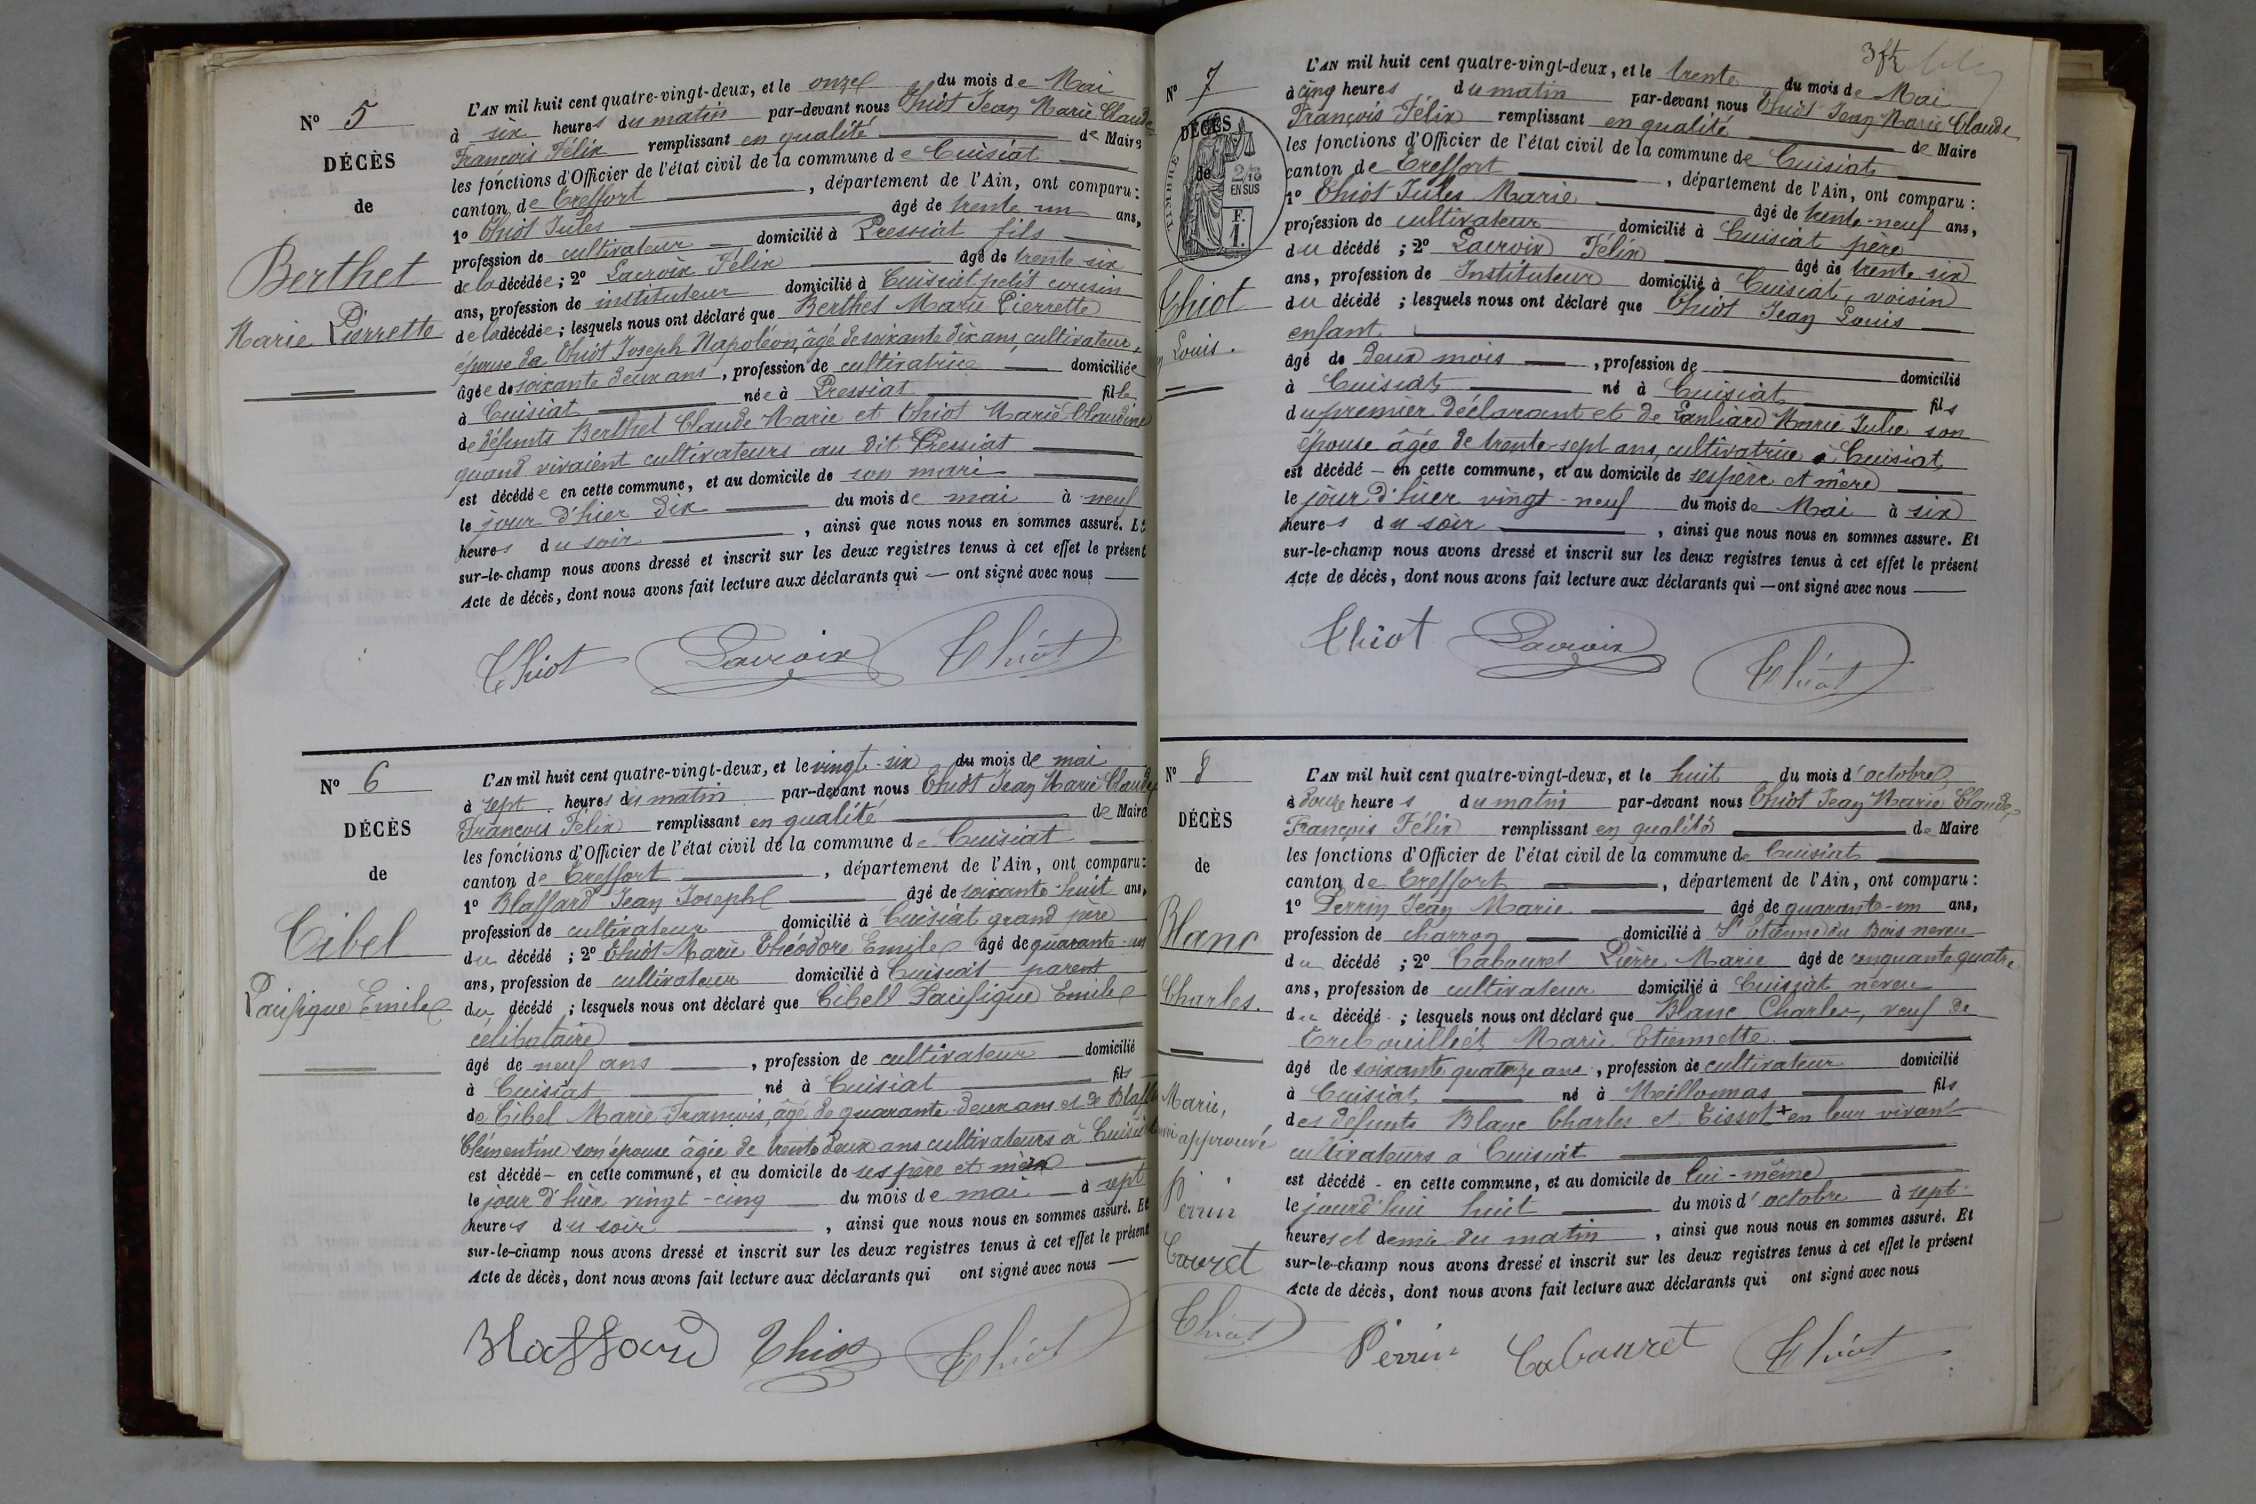 N° 5
DÉCÈS
de
Berthet
Marie Pierrette
L'AN mil huit cent quatre-vingt-deux, et le onze du mois de Mai
à six heures du matin par-devant nous Thiot Jean Marie Claude
François Félix remplissant en qualité de Maire
les fonctions d'Officier de l'état civil de la commune de Cuisiat
canton de Treffort, département de l'Ain, ont comparu:
1° Thiot Jules âgé de trente un ans,
profession de cultivateur domicilié à Pressiat fils
de la décédée; 2° Lacroix Félix âgé de trente six
ans, profession de instituteur domicilié à Cuisiat petit cousin
de la décédée; lesquels nous ont déclaré que Berthet Marie Pierrette
épouse de Thiot Joseph Napoléon, âgé de soixante dix ans, cultivateur,
âgée de soixante deux ans, profession de cultivatrice domiciliée
à Cuisiat née à Pressiat fille
de défunts Berthet Claude Marie et Thiot Marie Claudine
quand vivaient cultivateurs au dit Pressiat
est décédée en cette commune, et au domicile de son mari
le jour d'hier dix du mois de mai à neuf
heures du soir, ainsi que nous nous en sommes assuré. Et
sur-le-champ nous avons dressé et inscrit sur les deux registres tenus à cet effet le présent
Acte de décès, dont nous avons fait lecture aux déclarants qui — ont signé avec nous
Thiot Lacroix Thiot
N° 6
DÉCÈS
de
Cibel
Pacifique Emile
L'AN mil huit cent quatre-vingt-deux, et le vingt-six du mois de mai
à sept heures du matin par-devant nous Thiot Jean Marie Claude
François Félix remplissant en qualité de Maire
les fonctions d'Officier de l'état civil de la commune de Cuisiat
canton de Treffort, département de l'Ain, ont comparu:
1° Blaffard Jean Joseph âgé de soixante-huit ans,
profession de cultivateur domicilié à Cuisiat grand père
du décédé; 2° Thiot Marie Théodore Emile âgé de quarante-un
ans, profession de cultivateur domicilié à Cuisiat parent
du décédé; lesquels nous ont déclaré que Cibell Pacifique Emile
célibataire
âgé de neuf ans, profession de cultivateur domicilié
à Cuisiat né à Cuisiat fils
de Cibel Marie François, âgé de quarante deux ans et de
Clémentine son épouse âgée de trente deux ans cultivateurs à Cuisiat
est décédé — en cette commune, et au domicile de ses père et mère
le jour d'hier vingt-cinq du mois de mai à sept
heures du soir, ainsi que nous nous en sommes assuré. Et
sur-le-champ nous avons dressé et inscrit sur les deux registres tenus à cet effet le présent
Acte de décès, dont nous avons fait lecture aux déclarants qui ont signé avec nous
Blaffard Thiot Thiot
3 ft
N° 7
DÉCÈS
de
TIMBRE
2/10
EN SUS
F.
1.
Thiot
Louis.
L'AN mil huit cent quatre-vingt-deux, et le trente du mois de Mai
à cinq heures du matin par-devant nous Thiot Jean Marie Claude
François Félix remplissant en qualité de Maire
les fonctions d'Officier de l'état civil de la commune de Cuisiat
canton de Treffort, département de l'Ain, ont comparu:
1° Thiot Jules Marie âgé de trente-neuf ans,
profession de cultivateur domicilié à Cuisiat père
du décédé; 2° Lacroix Félix âgé de trente six
ans, profession de Instituteur domicilié à Cuisiat, voisin
du décédé; lesquels nous ont déclaré que Thiot Jean Louis
enfant
âgé de deux mois, profession de domicilié
à Cuisiat né à Cuisiat fils
du premier déclarant et de Marie Julie son
épouse âgée de trente-sept ans, cultivatrice à Cuisiat
est décédé — en cette commune, et au domicile de ses père et mère
le jour d'hier vingt-neuf du mois de Mai à six
heures du soir, ainsi que nous nous en sommes assuré. Et
sur-le-champ nous avons dressé et inscrit sur les deux registres tenus à cet effet le présent
Acte de décès, dont nous avons fait lecture aux déclarants qui — ont signé avec nous
Thiot Lacroix Thiot
N° 8
DÉCÈS
de
Blanc
Charles.
Marie,
approuvé
Perrin
Thiot
L'AN mil huit cent quatre-vingt-deux, et le huit du mois d'octobre
à douze heures du matin par-devant nous Thiot Jean Marie Claude
François Félix remplissant en qualité de Maire
les fonctions d'Officier de l'état civil de la commune de Cuisiat
canton de Treffort, département de l'Ain, ont comparu:
1° Perrin Jean Marie âgé de quarante-un ans,
profession de charron domicilié à St Etienne du Bois neveu
du décédé; 2° Cabouret Pierre Marie âgé de cinquante quatre
ans, profession de cultivateur domicilié à Cuisiat neveu
du décédé; lesquels nous ont déclaré que Blanc Charles, veuf de
Marie Etiennette
âgé de soixante quatorze ans, profession de cultivateur domicilié
à Cuisiat né à Meillonnas fils
des défunts Blanc Charles et Tissot + en leur vivant
cultivateurs à Cuisiat
est décédé - en cette commune, et au domicile de lui-même
le jourd'hui huit du mois d'octobre à sept
heures et demie du matin, ainsi que nous nous en sommes assuré. Et
sur-le-champ nous avons dressé et inscrit sur les deux registres tenus à cet effet le présent
Acte de décès, dont nous avons fait lecture aux déclarants qui ont signé avec nous
Perrin Cabouret Thiot